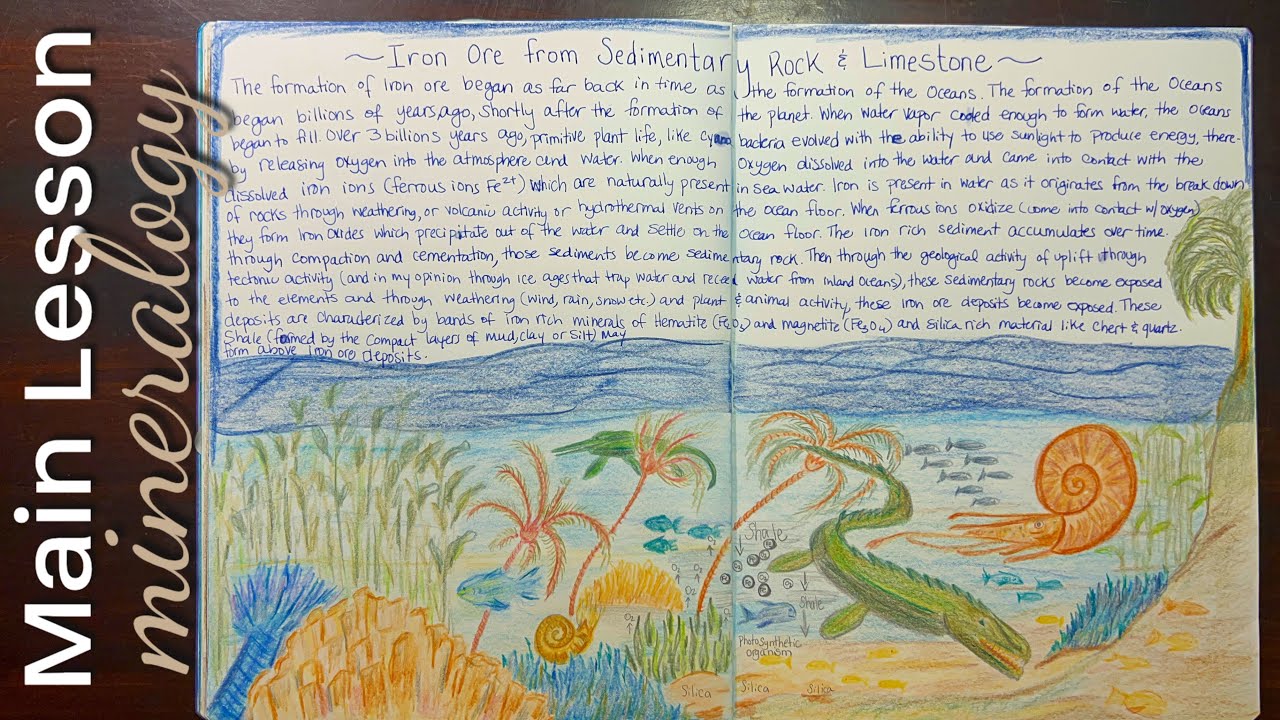 Main Lesson
mineralogy
~ Iron Ore from Sedimentary Rock & Limestone ~
The formation of Iron ore began as far back in time as the formation of the Oceans. The formation of the Oceans
began billions of years ago, Shortly after the formation of the planet. When water vapor cooled enough to form water, the oceans
began to fill. Over 3 billions years ago, primitive plant life, like cyano bacteria evolved with the ability to use sunlight to produce energy, there-
by releasing oxygen into the atmosphere and water. When enough oxygen dissolved into the water and came into contact with the
dissolved iron ions (ferrous ions Fe²⁺) which are naturally present in sea water. Iron is present in water as it originates from the break down
of rocks through weathering, or volcanic activity or hydrothermal vents on the ocean floor. When ferrous ions oxidize (come into contact w/ oxygen)
they form Iron Oxides which precipitate out of the water and settle on the ocean floor. The iron rich sediment accumulates over time.
through compaction and cementation, those sediments become sedimentary rock. Then through the geological activity of uplift through
tectonic activity (and in my opinion through ice ages that trap water and receed water from inland oceans), these sedimentary rocks become exposed
to the elements and through weathering (wind, rain, snow etc.) and plant & animal activity, these iron ore deposits become exposed. These
deposits are characterized by bands of iron rich minerals of Hematite (Fe₂O₃) and magnetite (Fe₃O₄) and silica rich material like chert & quartz.
Shale (formed by the compact layers of mud, clay or silt) may
form above iron ore deposits.
Shale
O₂
O₂ O₂
O₂
O₂ O₂
Shale
Photosynthetic
organism
Silica Silica Silica